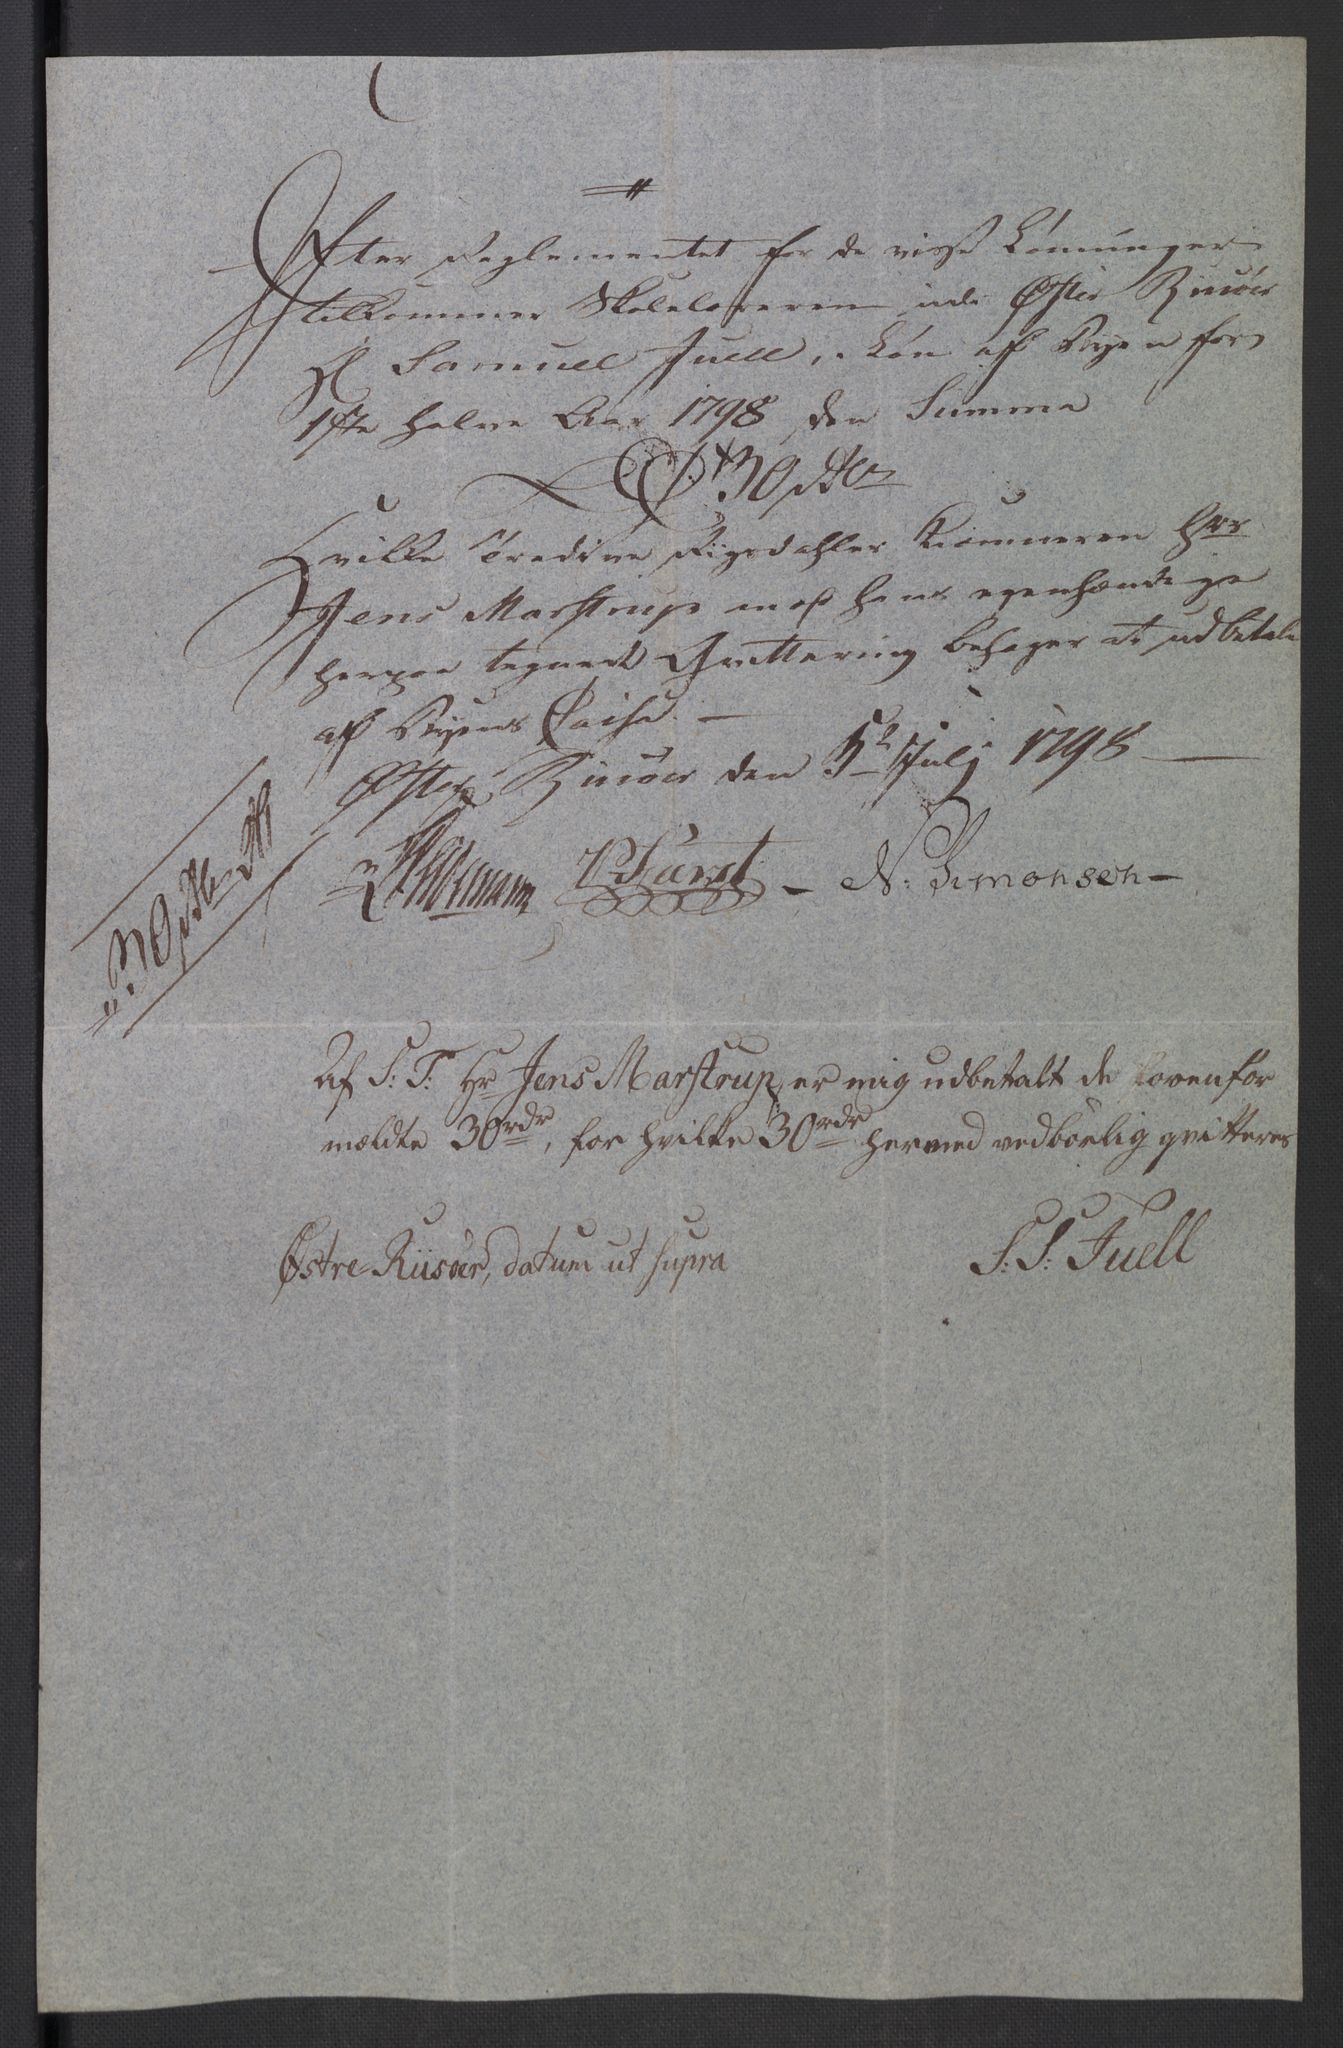 Efter Reglementet for de visse Lønninger
tilkommer Skolelæreren udi Øster Riisøer
Hr Samuel Juell, i Løn af Byen for
1ste halve Aar 1798 den Summa
30 rdlr
Hvilke Tredive Rigsdahler Kiemneren Herr
Jens Marstrup mod hans egenhændige
herpaa tegnede Qvittering behager at udbetale
af Byens Casse. —
Øster Riisøer den 5te Julj 1798 —
P Fürst — N: Simonsen —
30 rdlr
Af S: T: Hr Jens Marstrup, er mig udbetalt de forenfor
mældte 30 rdr, for hvilke 30 rdr herved vedbørlig qvitteres
Østre Riisøer, datum ut supra
S: S: Juell